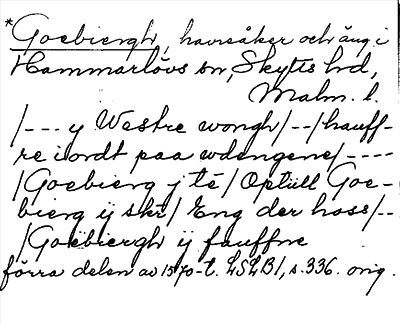 *Goebiergh, havreåker och äng i
Hammarlövs sn, Skytts hd,
Malm. l.
/--- y Westre wongh/--/hauff-
re i ordt paa wdengene/----
/Goebierg j té/Optill Goe-
bierg ij skr/Eng der hoss/--
/Goebiergh ij fauffne
förra delen av 1570-t. LSLB1, s. 336. orig.